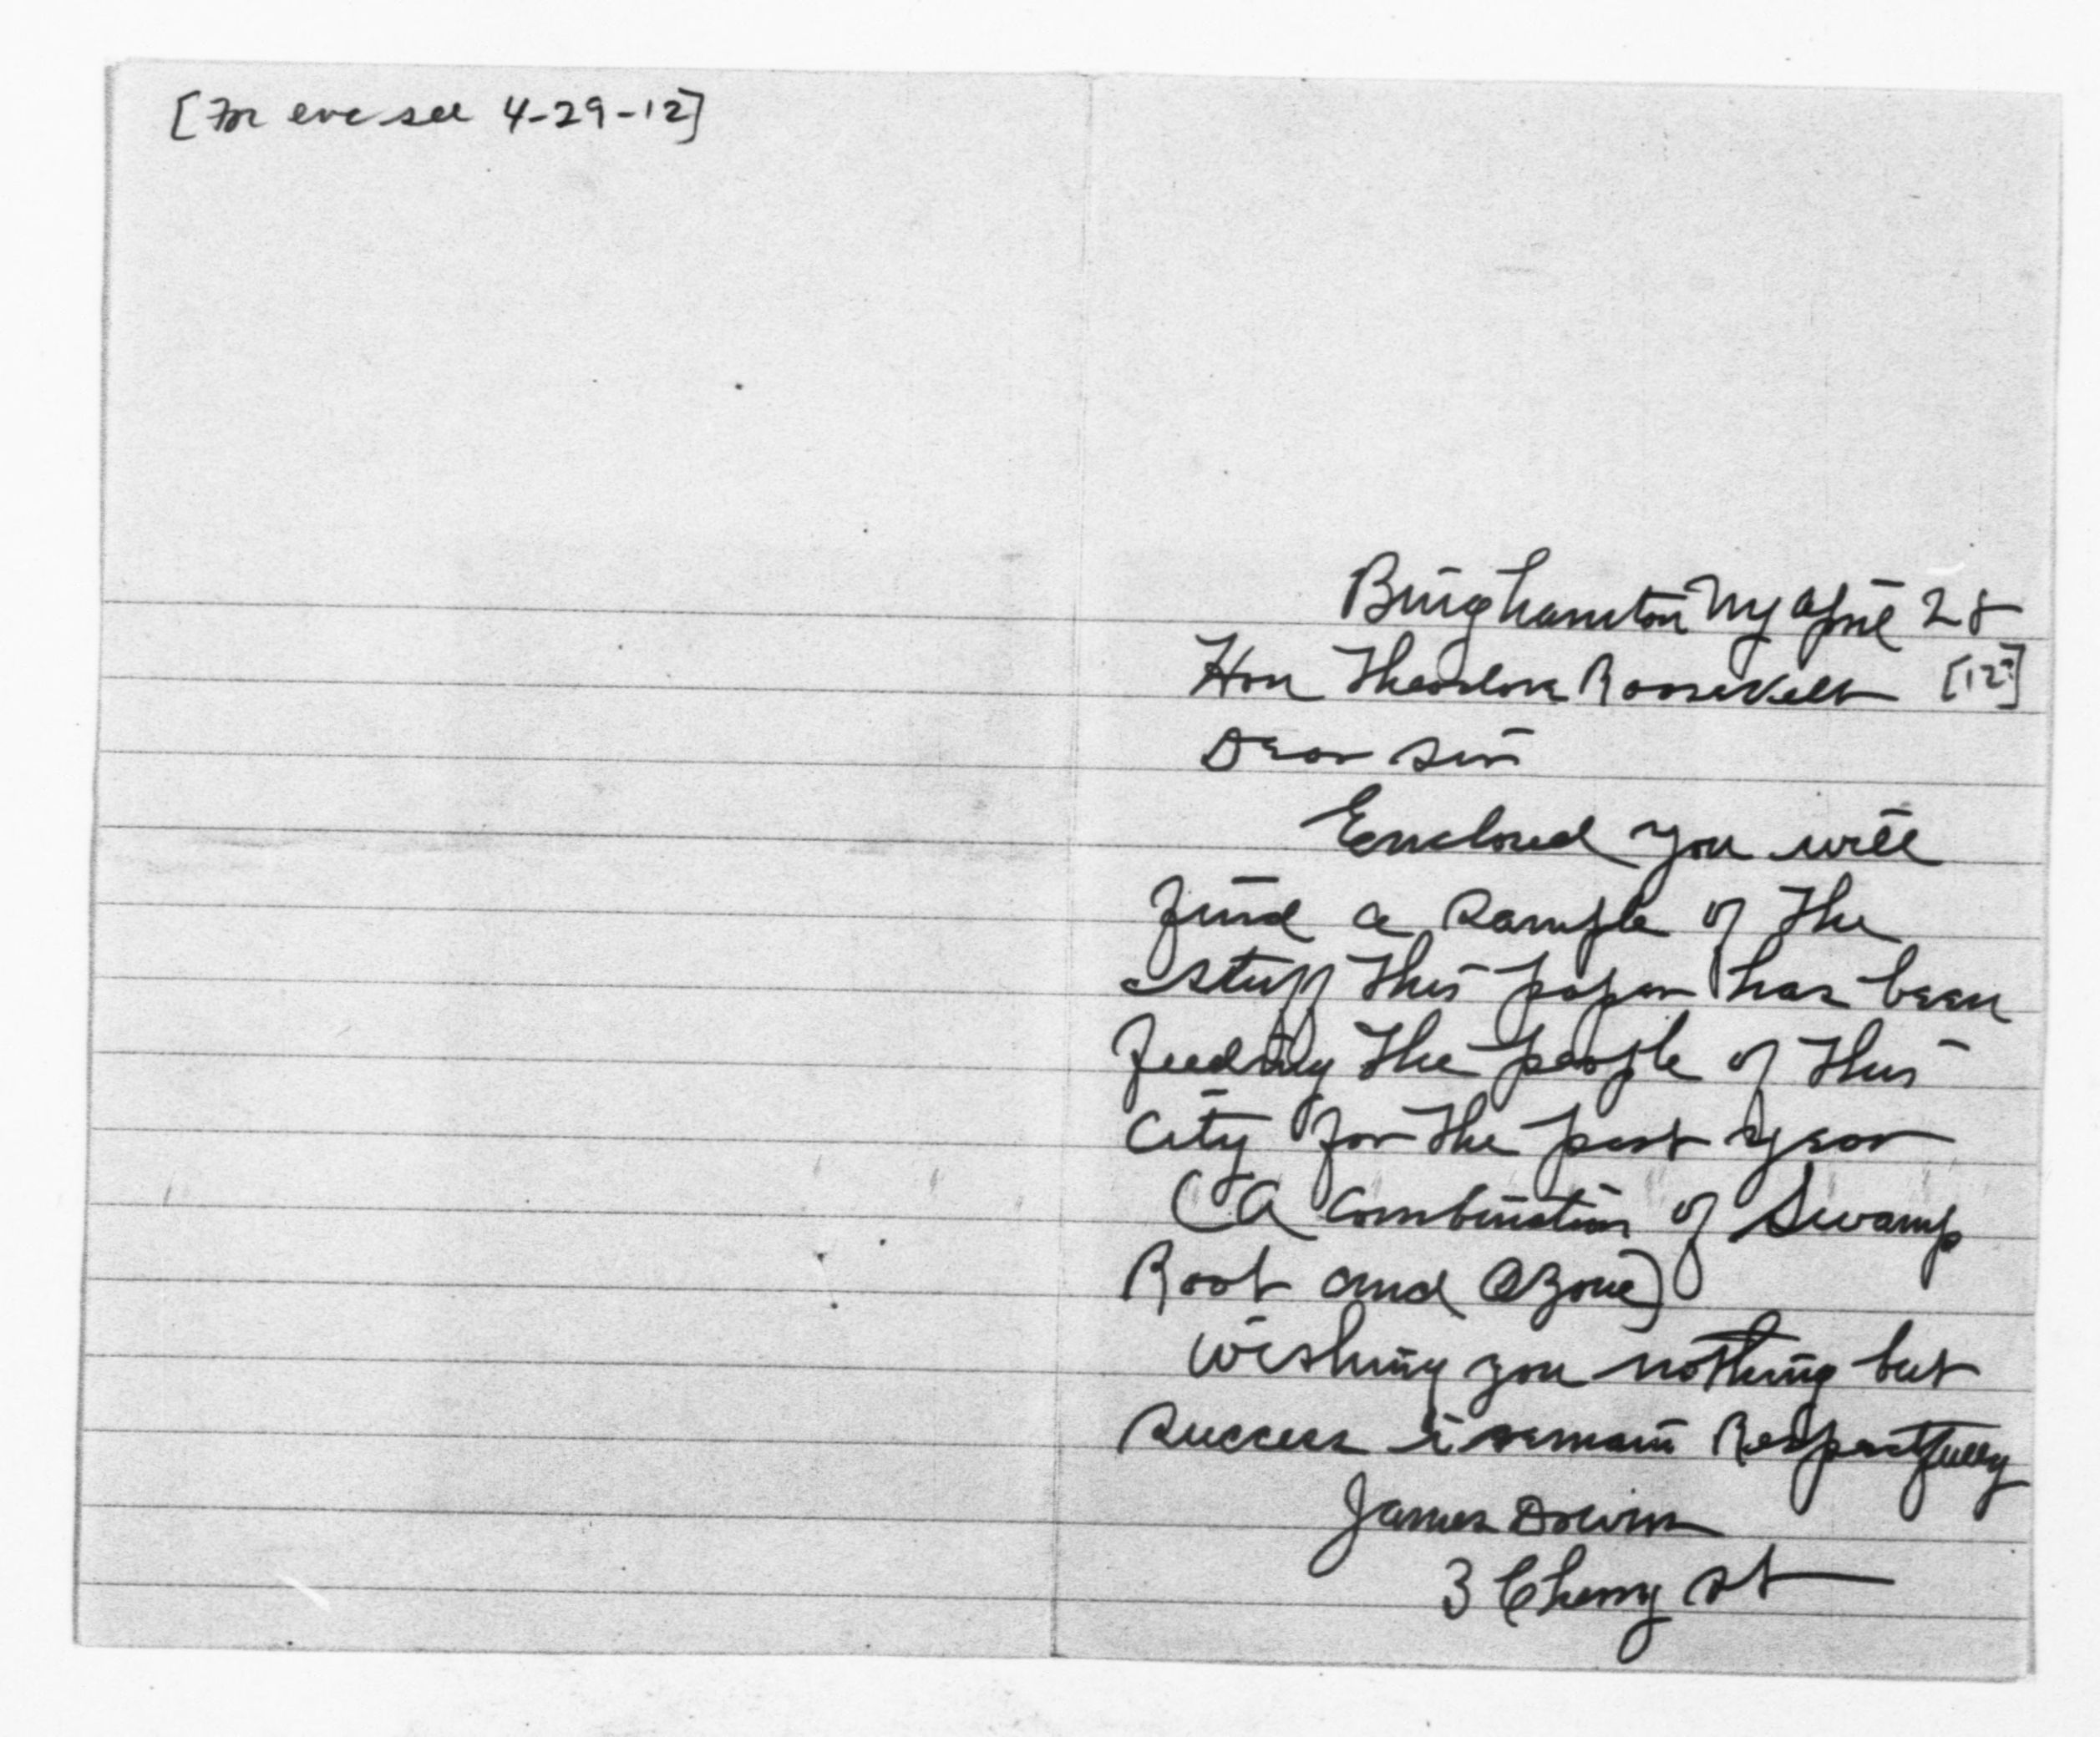 [For enc see 4-29-12]
Binghamton NY April 28
Hon Theodore Roosevelt [12?]
Dear Sir
Enclosed you will
find a sample of the
stuff this paper has been
feeding the people of this
City for the past year
(A combination of Swamp
Root and Ozone)
Wishing you nothing but
success i remain Respectfully
James
3 Cherry st